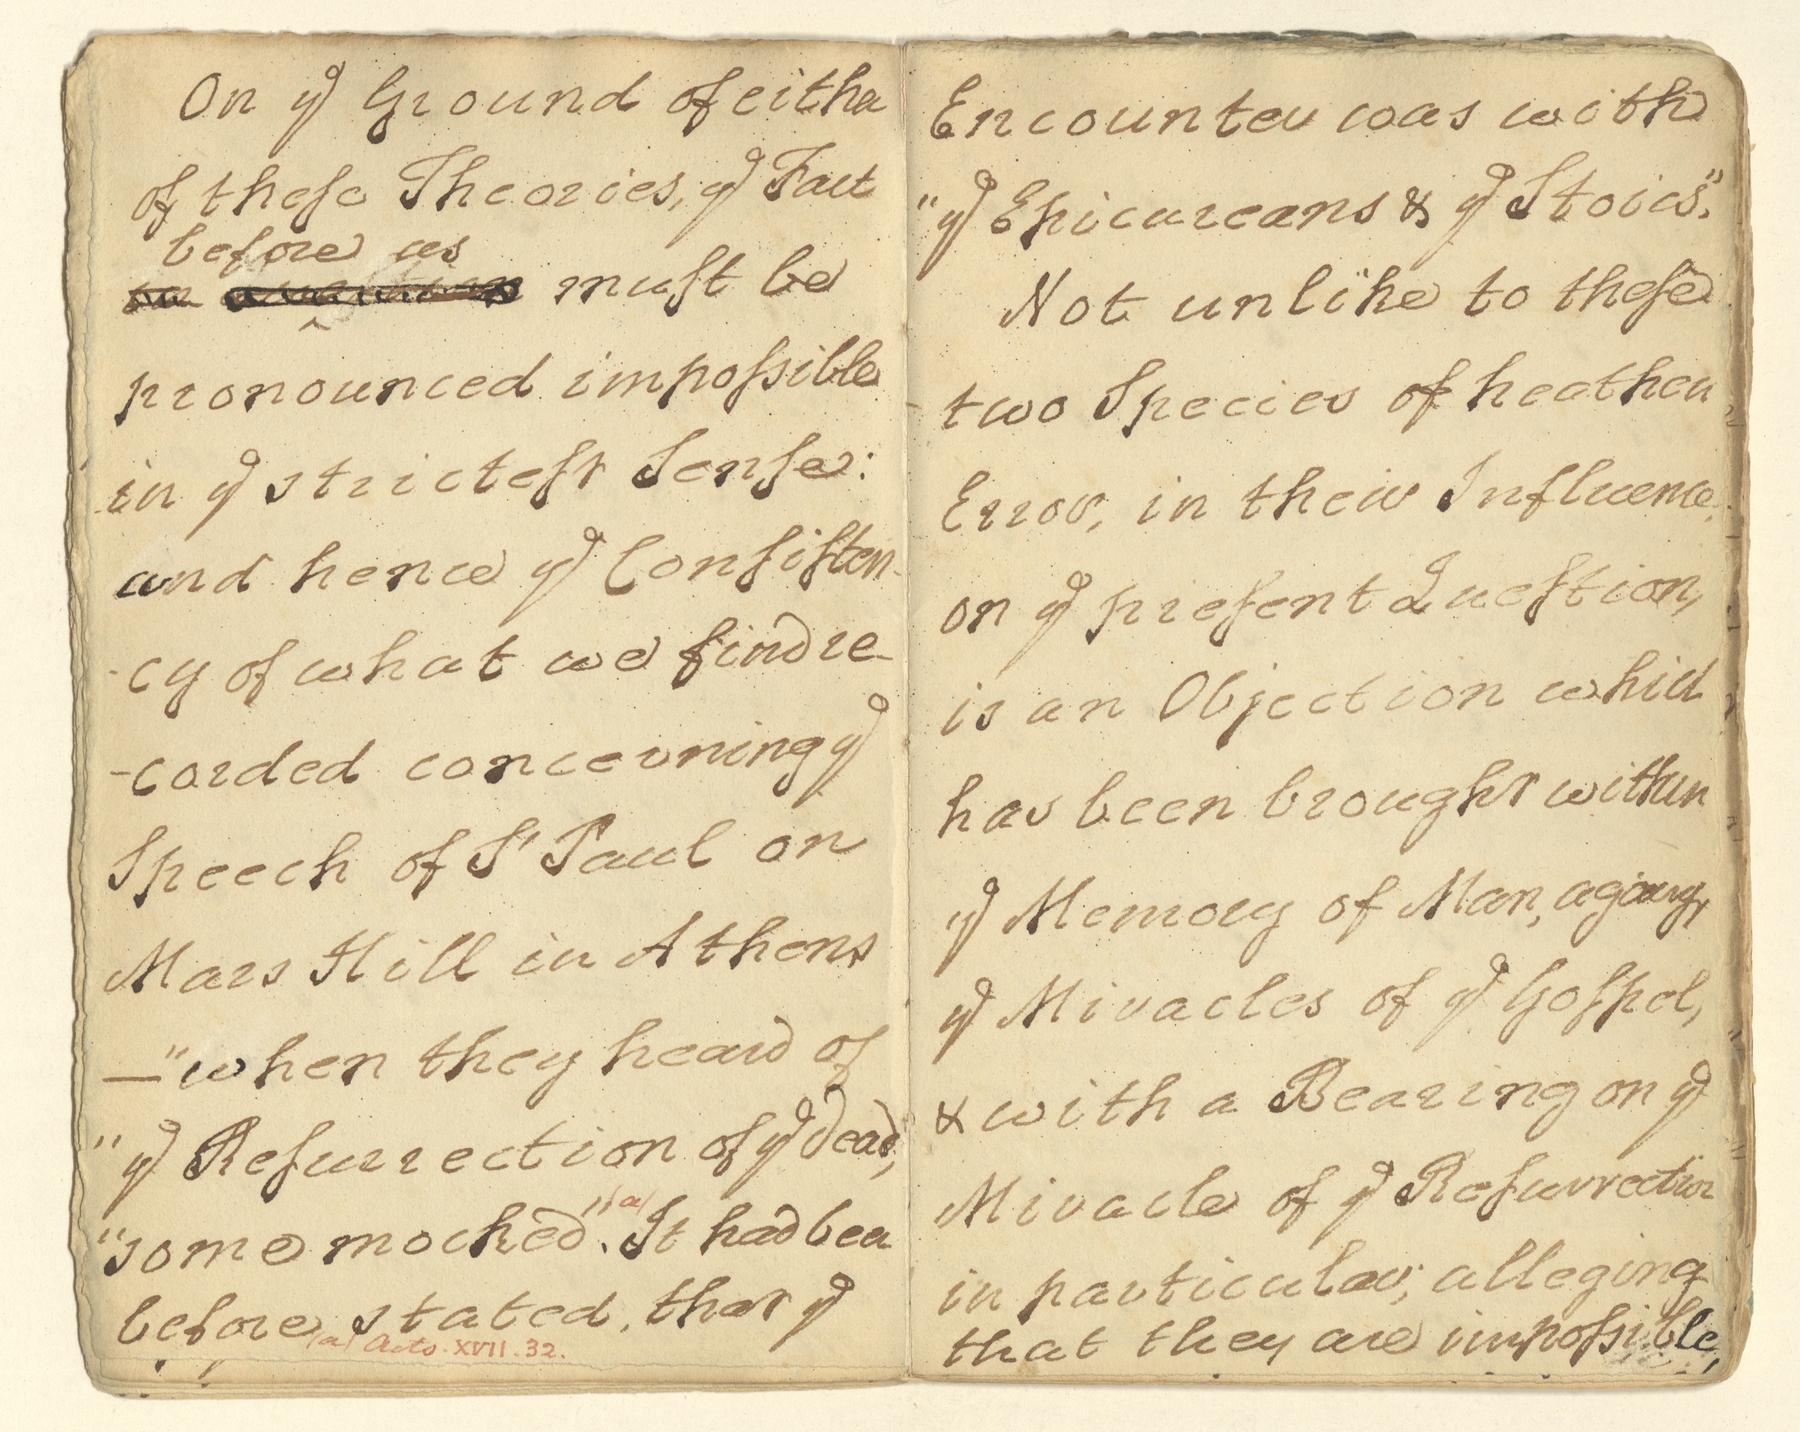 On yᵉ Ground of either
of these Theories, yᵉ Fact
before us
must be
pronounced impossible
in yᵉ strictest Sense:
and hence yᵉ Consisten-
-cy of what we find re-
-corded concerning yᵉ
Speech of Sᵗ Paul on
Mars Hill in Athens
—"when they heard of
"yᵉ Resurrection of yᵉ dead,
"some mocked".(a) It had been
before stated, that yᵉ
(a) Acts. XVII. 32.
Encounter was with
"yᵉ Epicureans & yᵉ Stoics".
Not unlike to these
two Species of heathen
Error, in their Influence,
on yᵉ present Question,
is an Objection which
has been brought within
yᵉ Memory of Man, against
yᵉ Miracles of yᵉ Gospel,
& with a Bearing on yᵉ
Miracle of yᵉ Resurrection
in particular; alleging
that they are impossible,